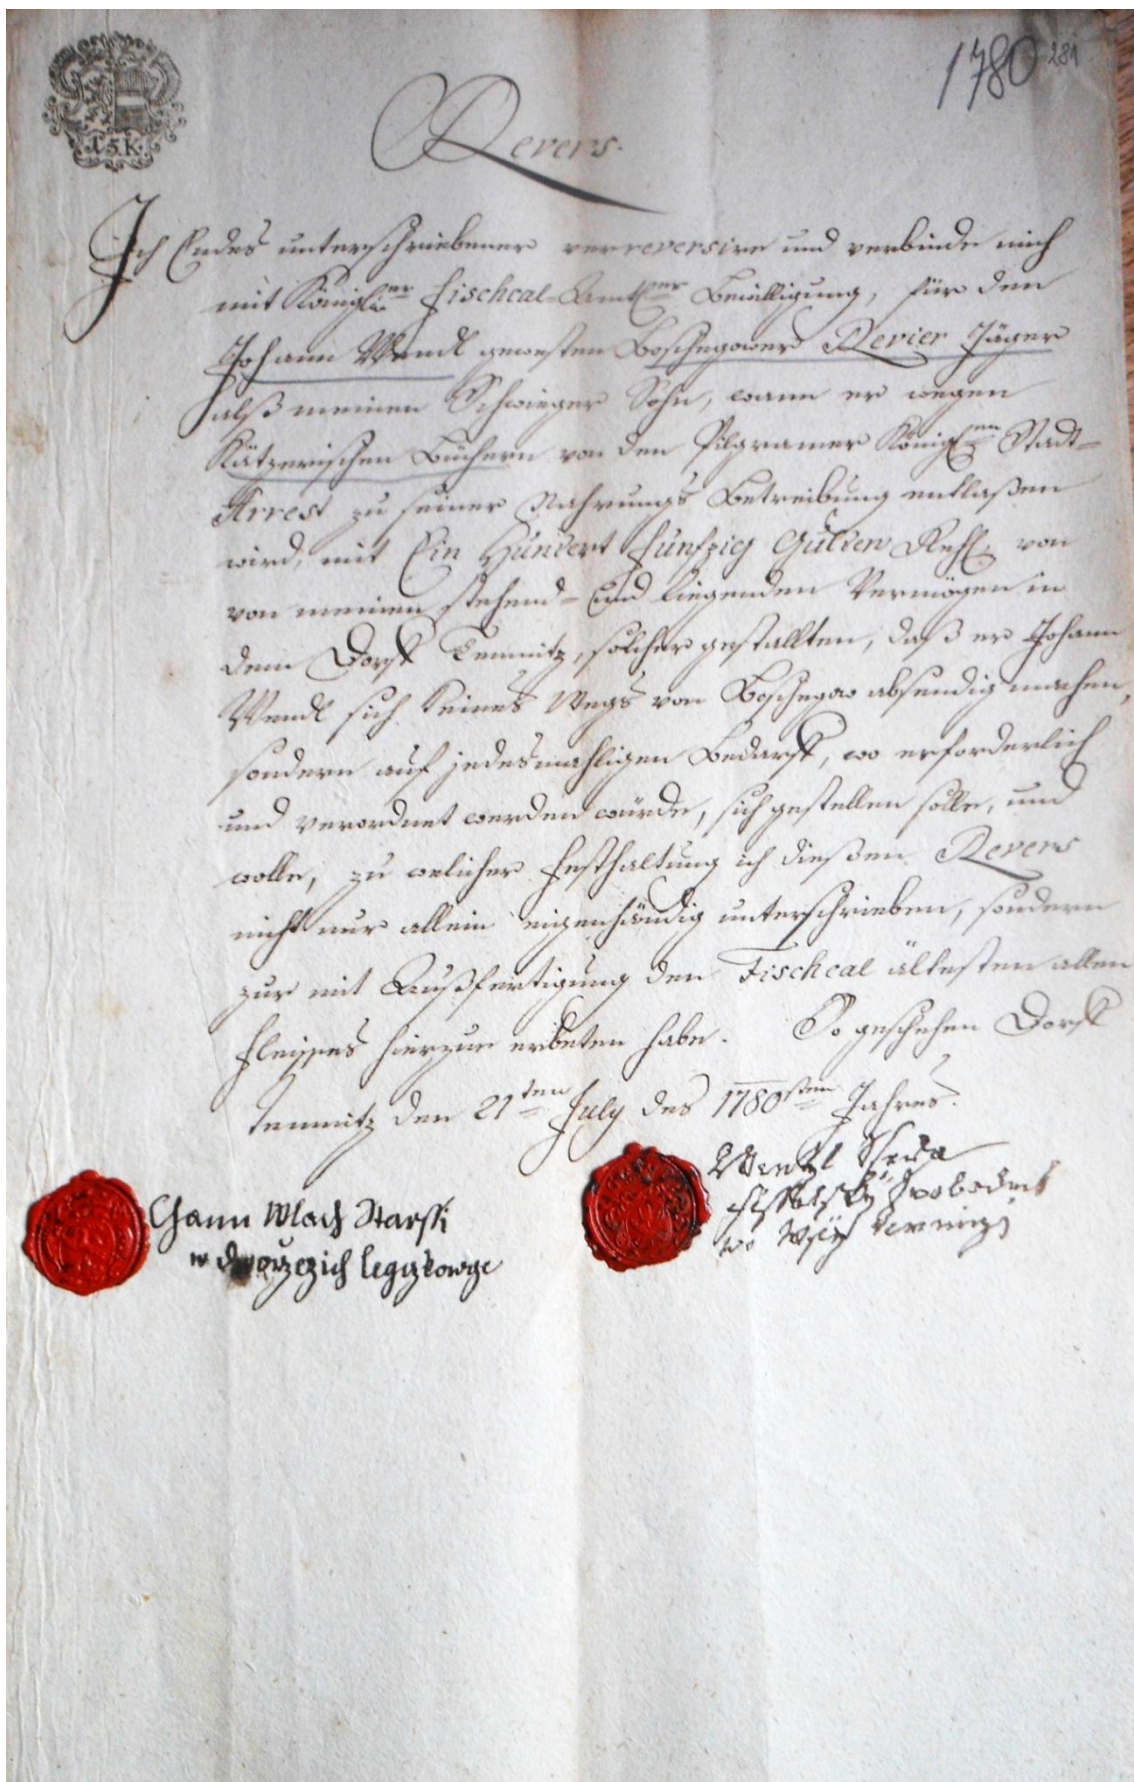 1780 281
15.K.
Revers.
Ich Endes unterschriebener verreversire und verbinde mich
mit Königlicher Fischcal-Amtler Bewilligung, für den
Johann Wendl gewesten Boschegower Revier Jäger
alß meinen Schwieger Sohn, wann er wegen
Kätzerischen Büchern von den Pilgramer Königlen Stadt-
Arrest zu seiner Nahrungs Betreibung entlaßen
wird, mit Ein Hundert Fünfzig Gulden von
von meinen stehend- und liegenden Vermögen in
dem Dorff Temnitz, solcher gestallten, daß er Johann
Wendl sich keines Wegs von Boschegow absendig machen,
sondern auf jedesmahligen Bedarff, wo erforderlich
und verordnet werden würde, sich gestellen solle, und
wolle, zu welicher Festhaltung ich dießen Revers
nicht nur allein eigenhändig unterschrieben, sondern
zur mit Außfertigung den Fischcal ältesten allen
Fleisses hierzue erbeten habe. So geschehen Dorff
Temnitz den 21ten July des 1780sten Jahres.
Wentzl
Svobodnik
wo Wsy
Gann Wlach Starssi
w